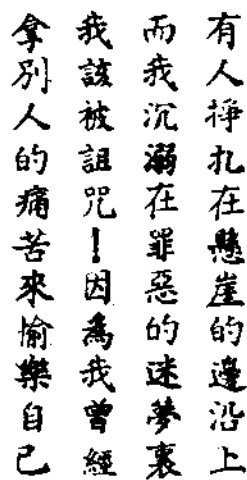 有人掙扎在懸崖的邊沿上
而我沉溺在罪惡的迷夢裏
我該被詛咒！因為我曾經
拿別人的痛苦來愉樂自己